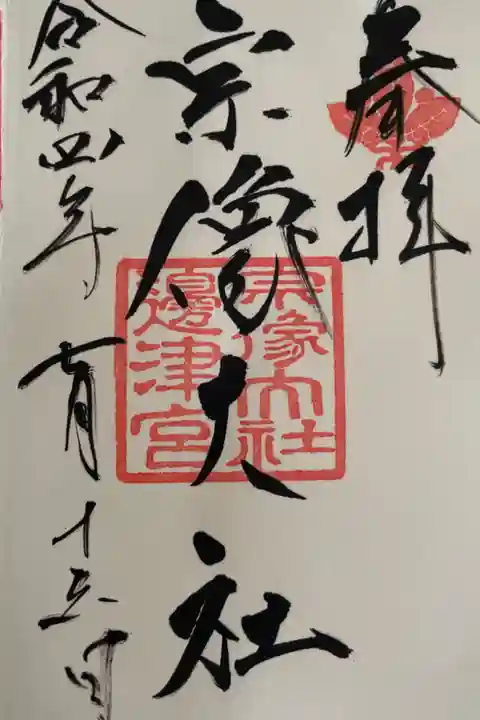 奉拝
宗像大社
宗像大社
邊津宮
令和四年
十五日